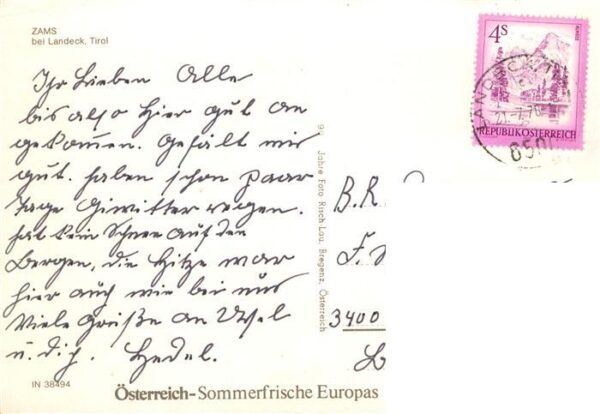 ZAMS
bei Landeck, Tirol
Ihr Lieben Alle
bis also hier gut an
gekommen. Gefällt mir
gut. haben schon paar
Tage Giwitter regen.
hat kein Schnee auf den
Bergen, die Hitze war
hier auch wie bei uns
Viele Grüße an
u. dich. Hedel.
IN 38494
Österreich-Sommerfrische Europas
Jahre Foto Risch Lau, Bregenz, Österreich
4S
REPUBLIK ÖSTERREICH
LANDECK
6500
B.R.
3400